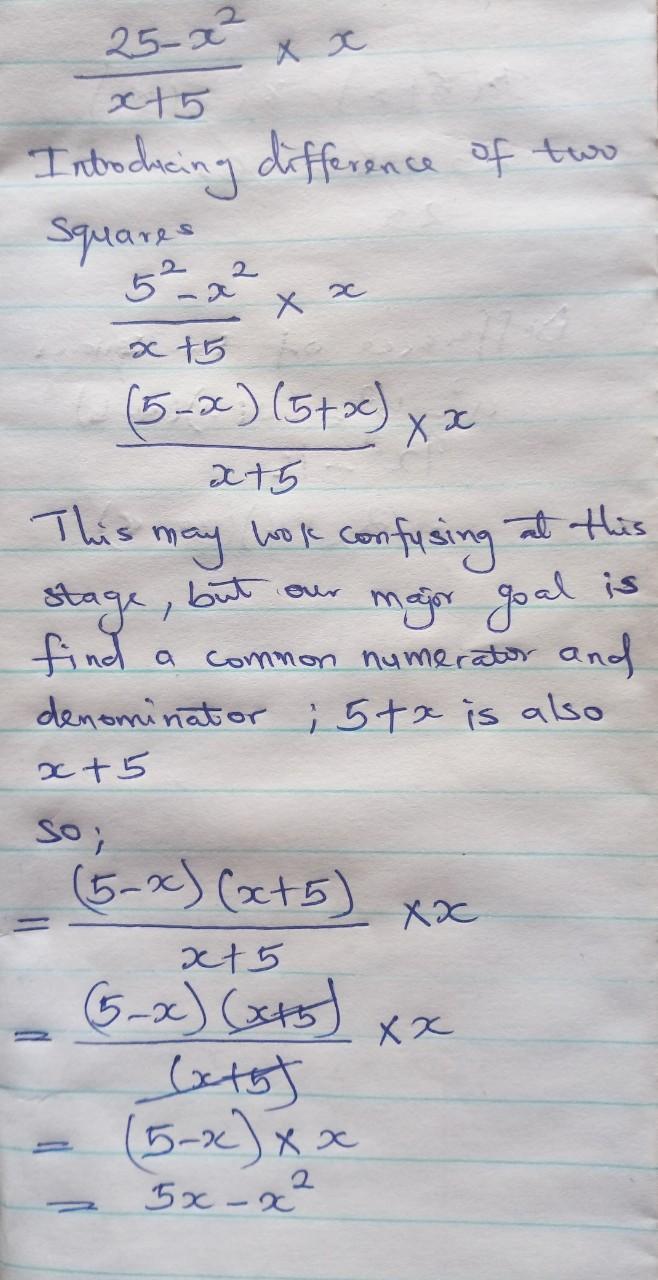 25-x²
───── × x
x+5
Introducing difference of two
squares
5²-x²
───── × x
x+5
(5-x)(5+x)
────────── × x
x+5
This may look confusing at this
stage, but our major goal is
find a common numerator and
denominator ; 5+x is also
x+5
so;
= (5-x)(x+5)
────────── × x
x+5
= (5-x)(x+5)
────────── × x
(x+5)
= (5-x) × x
= 5x-x²